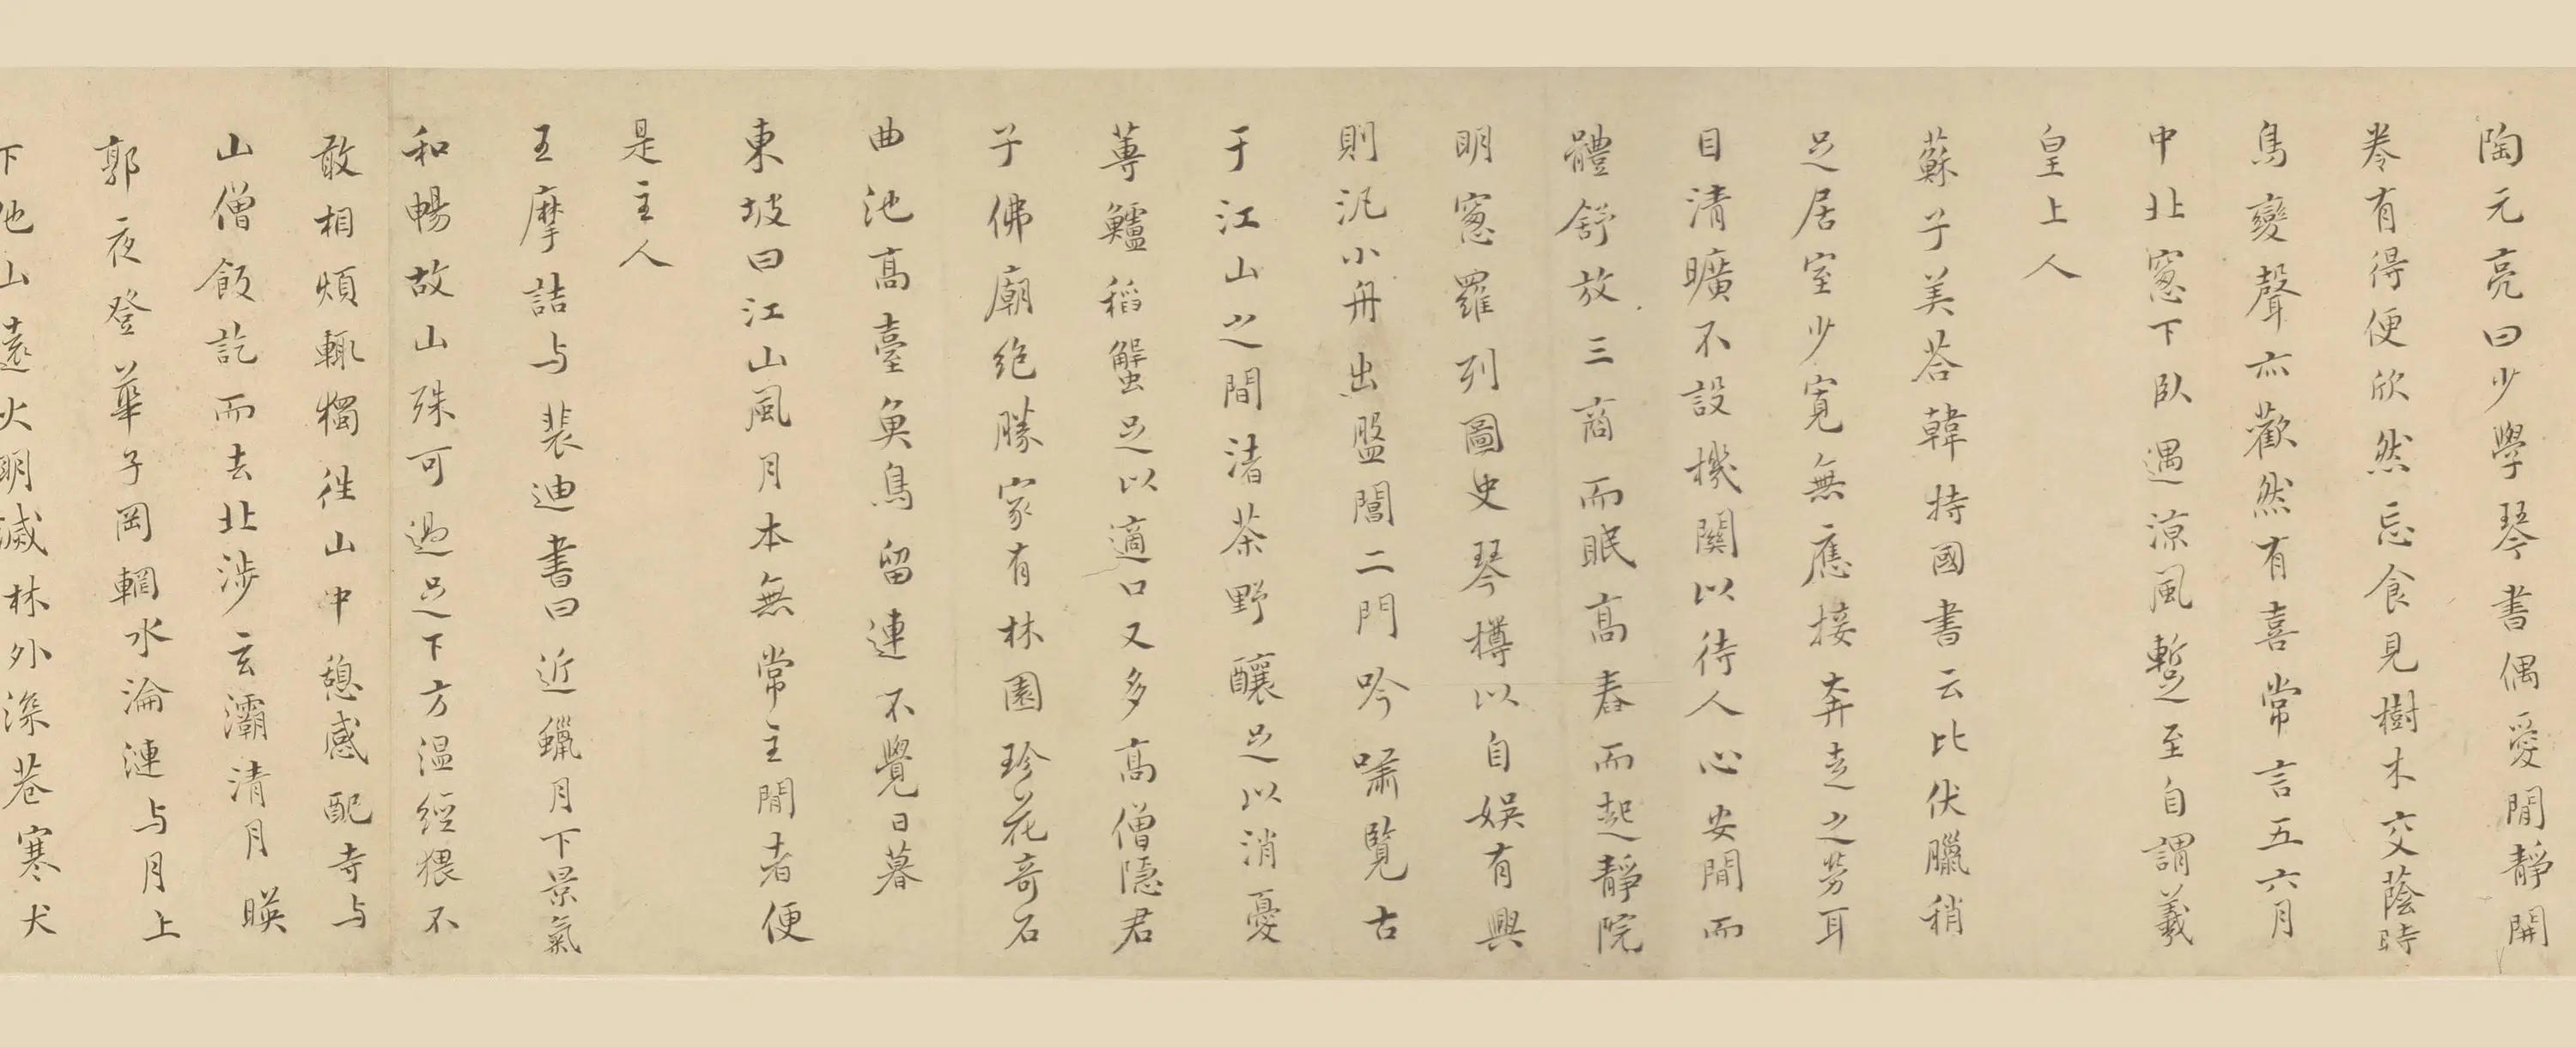 陶元亮曰少學琴書偶愛閒靜開
卷有得便欣然忘食見樹木交蔭時
鳥變聲亦歡然有喜常言五六月
中北窻下臥遇涼風暫至自謂羲
皇上人
蘇子美荅韓持國書云比伏臘稍
足居室少寬無應接奔走之勞耳
目清曠不設機關以待人心安閒而
體舒放三商而眠高舂而起靜院
明窻羅列圖史琴樽以自娛有興
則汎小舟出盤閶二門吟嘯覽古
于江山之間渚茶野釀足以消憂
蓴鱸稻蟹足以適口又多高僧隱君
子佛廟絶勝家有林園珍花奇石
曲池高臺魚鳥留連不覺日暮
東坡曰江山風月本無常主閒者便
是主人
王摩詰与裴迪書曰近蠟月下景氣
和暢故山殊可過足下方温經猥不
敢相煩輙獨徃山中憩感配寺与
山僧飯訖而去北涉玄灞清月暎
郭夜登華子岡輞水淪漣与月上
下他山遠火明滅林外深巷寒犬